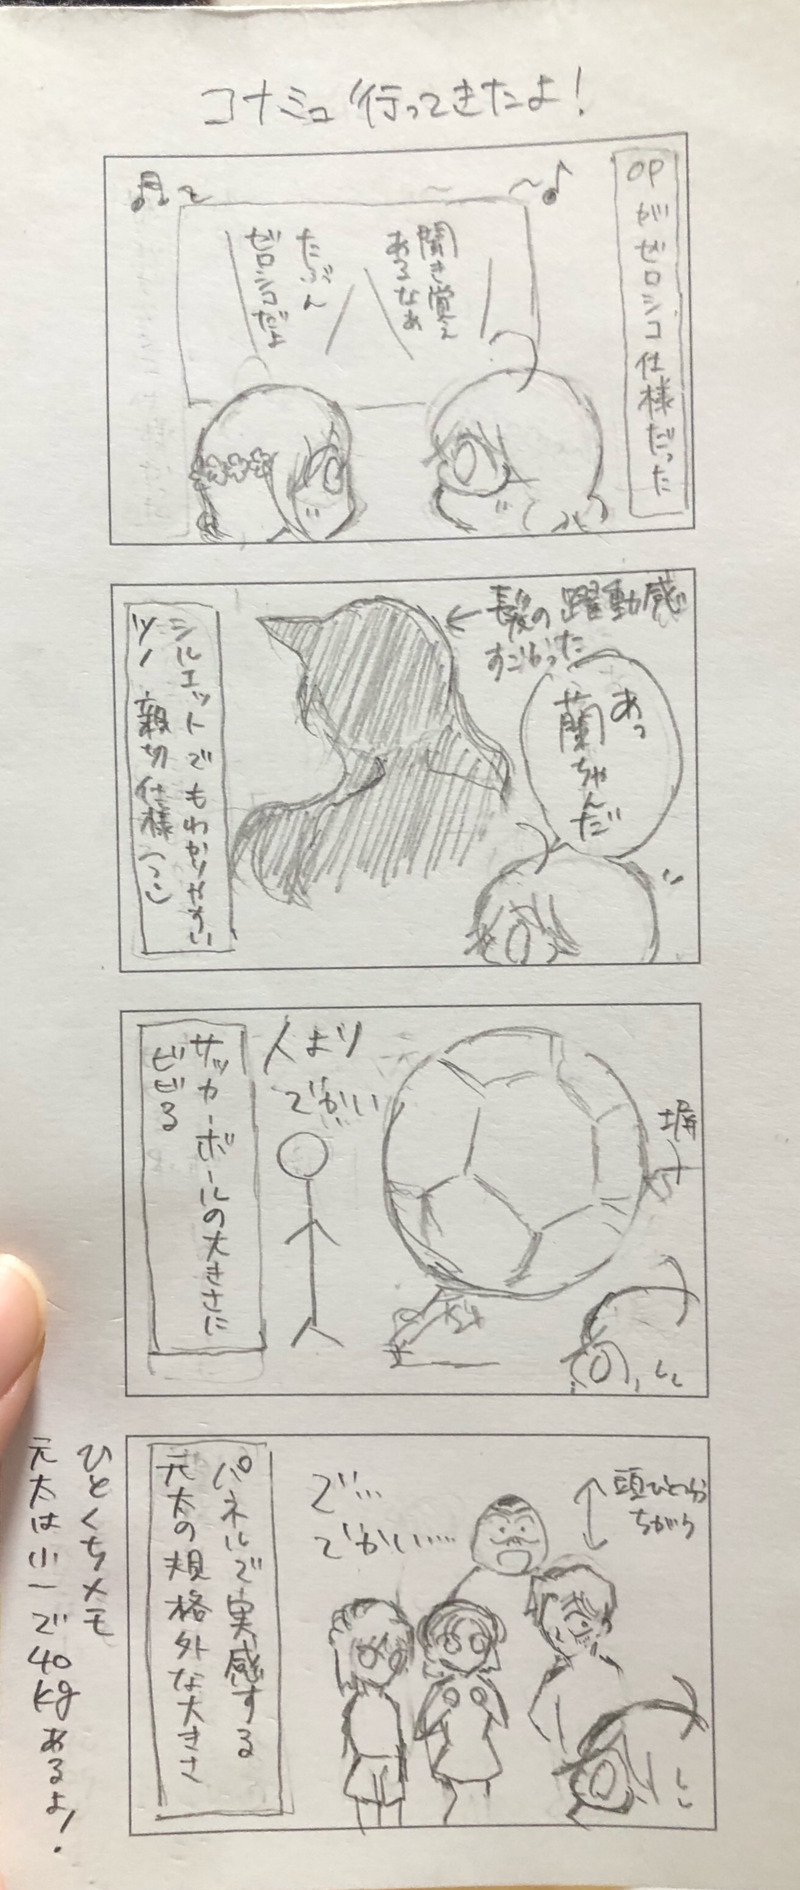 コナミュ行ってきたよ！
OPがゼロシコ仕様だった
聞き覚え
あるなぁ
たぶん
ゼロシコだよ
髪の躍動感
すごかった
あっ
蘭ちゃんだ
シルエットでもわかりやすい
ツノ 親切仕様
塀
人より
でかい
サッカーボールの大きさに
ビビる
頭ひとつ分
ちがう
で…
でかい…
パネルで実感する
元太の規格外な大きさ
ひとくちメモ
元太は小一で40kgあるよ！